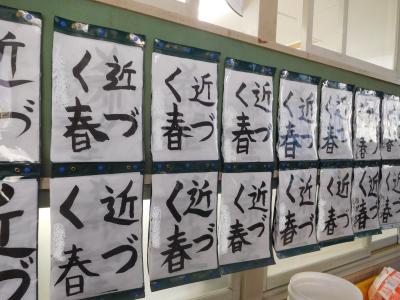 近づ
近づ
く春
近づ
く春
近づ
く春
近づ
く春
近づ
く春
近づ
く春
近づ
く春
近づ
近づ
く春
近づ
く春
近づ
く春
近づ
く春
近づ
く春
近づ
く春
近づ
く春